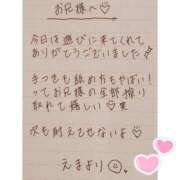 お兄様へ♡
今日は遊びに来てくれて
ありがとうございました🎶
手つきも絞め方もやばい!
ってお尻の全部搾り
取れて嬉しい♡笑
次も耐えさせないよ♡
えまより☺